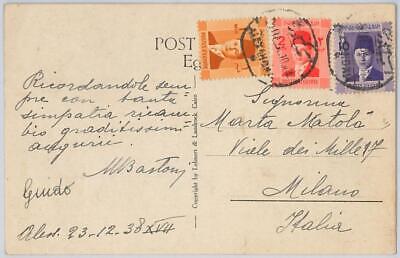 POST
Eg
Ricordandole sem
pre con tanta
simpatia ricam
bio graditissimi
auguri.
MBastony
Guido
Ales. 23-12-38 XVII
Copyright by Lehnert & Landrock, Cairo
Signorina
Marta Matolà
Viale dei Mille 17
Milano
Italia